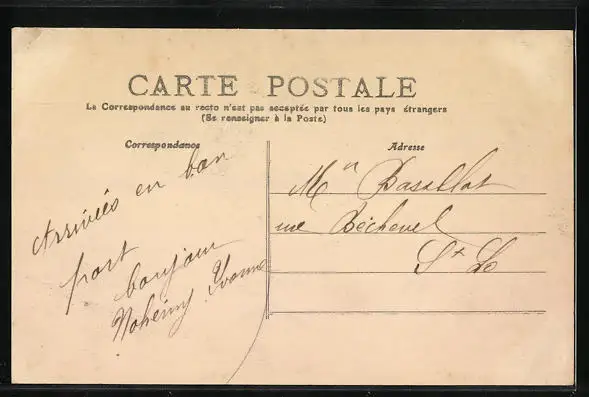 CARTE POSTALE
La Correspondance au recto n'est pas acceptée par tous les pays étrangers
(Se renseigner à la Poste)
Correspondance
Arrivées en bon
port
bonjour
Yvonne
Adresse
rue Béchevel
St Lo